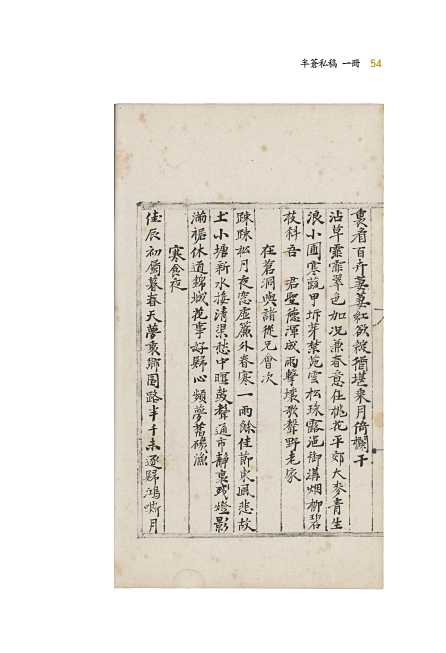 半蒼私稿 一冊 54
裏看百卉蓂蓂紅欲綻循堤乘月倚欄干
沾草霏霏翠色加況兼春意住桃花平郊大麥青生
浪小圃寒蔬甲坼芽禁苑雲松球露浥御溝烟柳碧
枝斜吾 君聖德渾成雨擊壤歌聲野老家
在蒼洞與諸從兄會次
疎疎松月夜窓虛簾外春寒一雨餘佳節東風悲故
土小塘新水接清渠愁中暄鼓聲通市靜裏殘燈影
滿裾休道錦城花事好歸心頻夢舊磯漁
寒食夜
佳辰初屬暮春天夢裏鄉園路半千未逐歸鴻嘶月